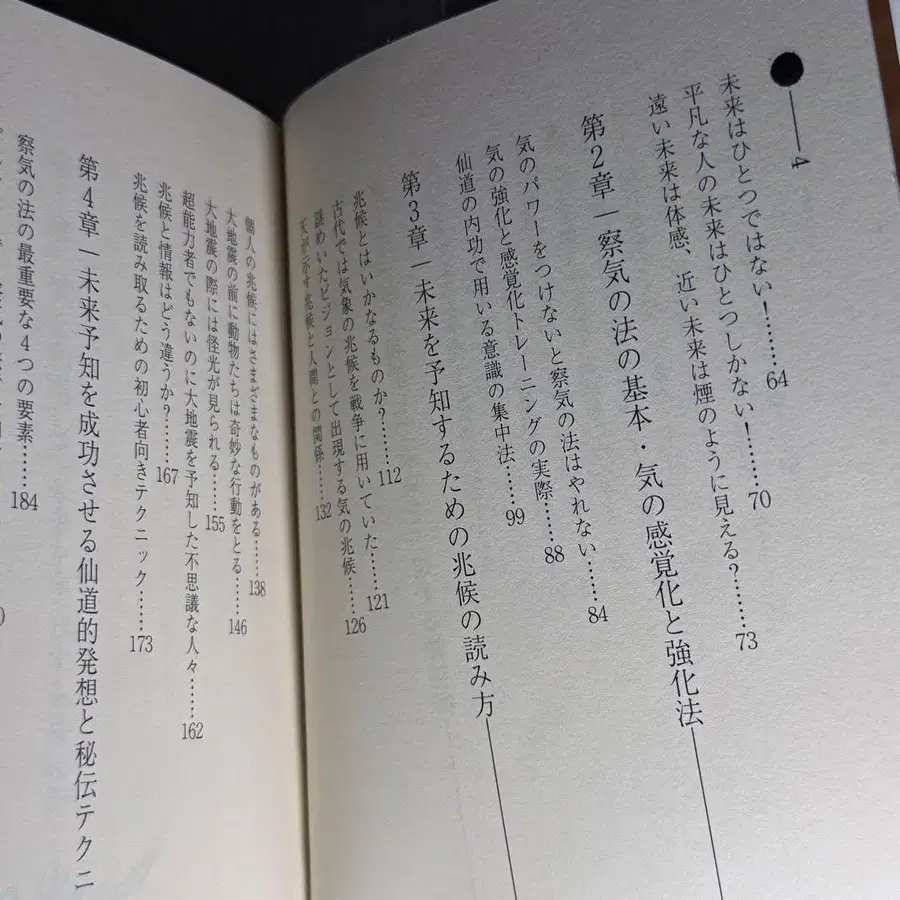 4
未来はひとつではない!……64
平凡な人の未来はひとつしかない!……70
遠い未来は体感、近い未来は煙のように見える?……73
第2章―察気の法の基本・気の感覚化と強化法
気のパワーをつけないと察気の法はやれない……84
気の強化と感覚化トレーニングの実際……88
仙道の内功で用いる意識の集中法……99
第3章―未来を予知するための兆候の読み方
兆候とはいかなるものか?……112
古代では気象の兆候を戦争に用いていた……121
謎めいたビジョンとして出現する気の兆候……126
天が示す兆候と人間との関係……132
個人の兆候にはさまざまなものがある……138
大地震の前に動物たちは奇妙な行動をとる……146
大地震の際には怪光が見られる……155
超能力者でもないのに大地震を予知した不思議な人々……162
兆候と情報はどう違うか?……167
兆候を読み取るための初心者向きテクニック……173
第4章―未来予知を成功させる仙道的発想と秘伝テクニ
察気の法の最重要な4つの要素……184